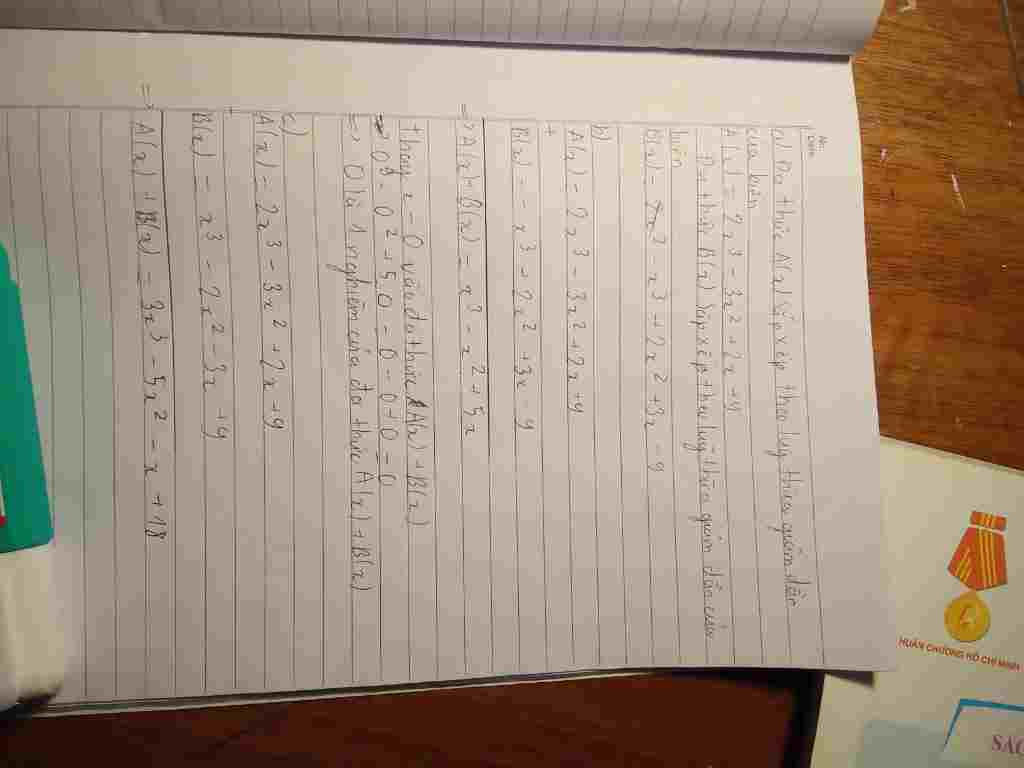 No:
Date:
a) Đa thức A(x) sắp xếp theo luỹ thừa giảm dần
của biến
A(x) = 2x³ - 3x² + 2x + 9
Đa thức B(x) sắp xếp theo luỹ thừa giảm dần của
biến
B(x) = - x³ + 2x² + 3x - 9
b)
A(x) = 2x³ - 3x² + 2x + 9
+
B(x) = - x³ + 2x² + 3x - 9
=> A(x) + B(x) = x³ - x² + 5x
thay x = 0 vào đa thức A(x) + B(x)
0³ - 0² + 5.0 = 0 - 0 + 0 = 0
=> 0 là 1 nghiệm của đa thức A(x) + B(x)
c)
A(x) = 2x³ - 3x² + 2x + 9
B(x) = x³ - 2x² - 3x + 9
=> A(x) + B(x) = 3x³ - 5x² - x + 18
HUÂN CHƯƠNG HỒ CHÍ MINH